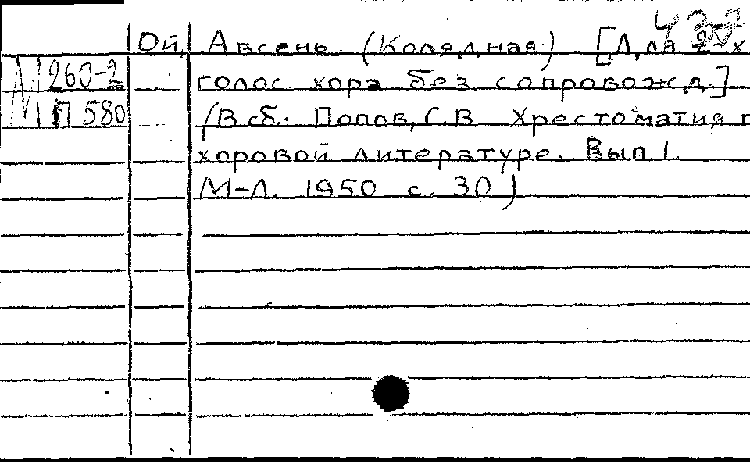 Ой, Авсень (Колядная) [Для 2-х
М 260-2 голос. хора без сопровожд.]
П 580 (В сб. Попов, С.В Хрестоматия п
хоровой литературе. Вып 1.
М-Л. 1950 с. 30)